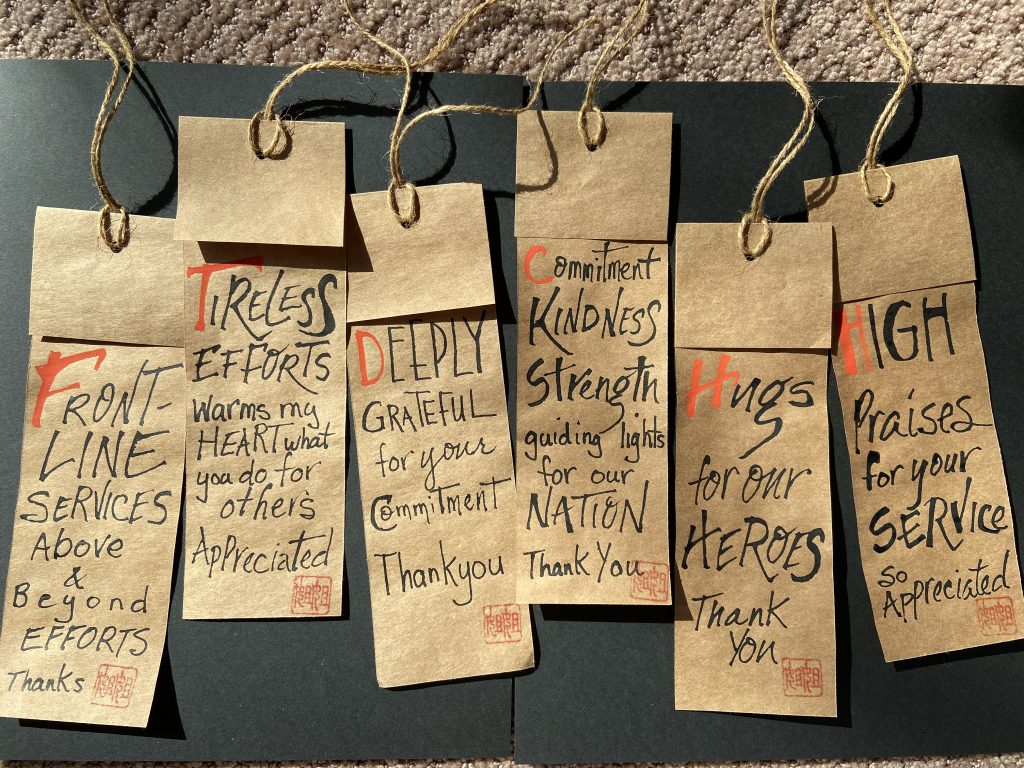 FRONT-
LINE
SERVICES
Above
&
Beyond
EFFORTS
Thanks
TIRELESS
EFFORTS
warms my
HEART what
you do for
other's
Appreciated
DEEPLY
GRATEFUL
for your
Commitment
Thankyou
Commitment
KINDNESS
Strength
guiding lights
for our
NATION
Thank You
Hugs
for our
HEROES
Thank
You
HIGH
Praises
for your
SERVICE
so
Appreciated